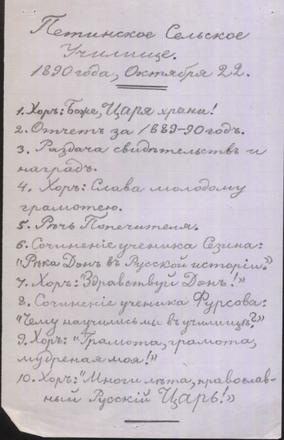 Петинское Сельское
Училище.
1890 года, Октября 22.
1. Хоръ: Боже, Царя храни!
2. Отчетъ за 1889-90 годъ.
3. Раздача свидѣтельствъ и
наградъ.
4. Хоръ: Слава молодому
грамотею.
5. Рѣчь Попечителя.
6. Сочиненіе ученика Сезина:
"Рѣка Донъ въ Русской исторіи."
7. Хоръ: Здравствуй Донъ!"
8. Сочиненіе ученика Фурсова:
"Чему научились мы въ училищѣ?"
9. Хоръ: "Грамота, грамота,
мудреная моя!"
10. Хоръ: "Многи лѣта, православ-
ный Русскій Царь!"